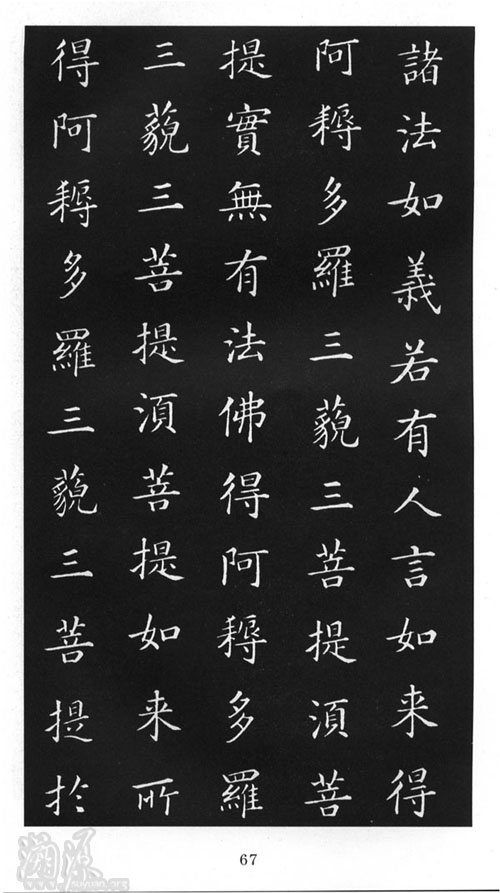 諸法如義若有人言如来得
阿耨多羅三藐三菩提湏菩
提實無有法佛得阿耨多羅
三藐三菩提湏菩提如来所
得阿耨多羅三藐三菩提於
67